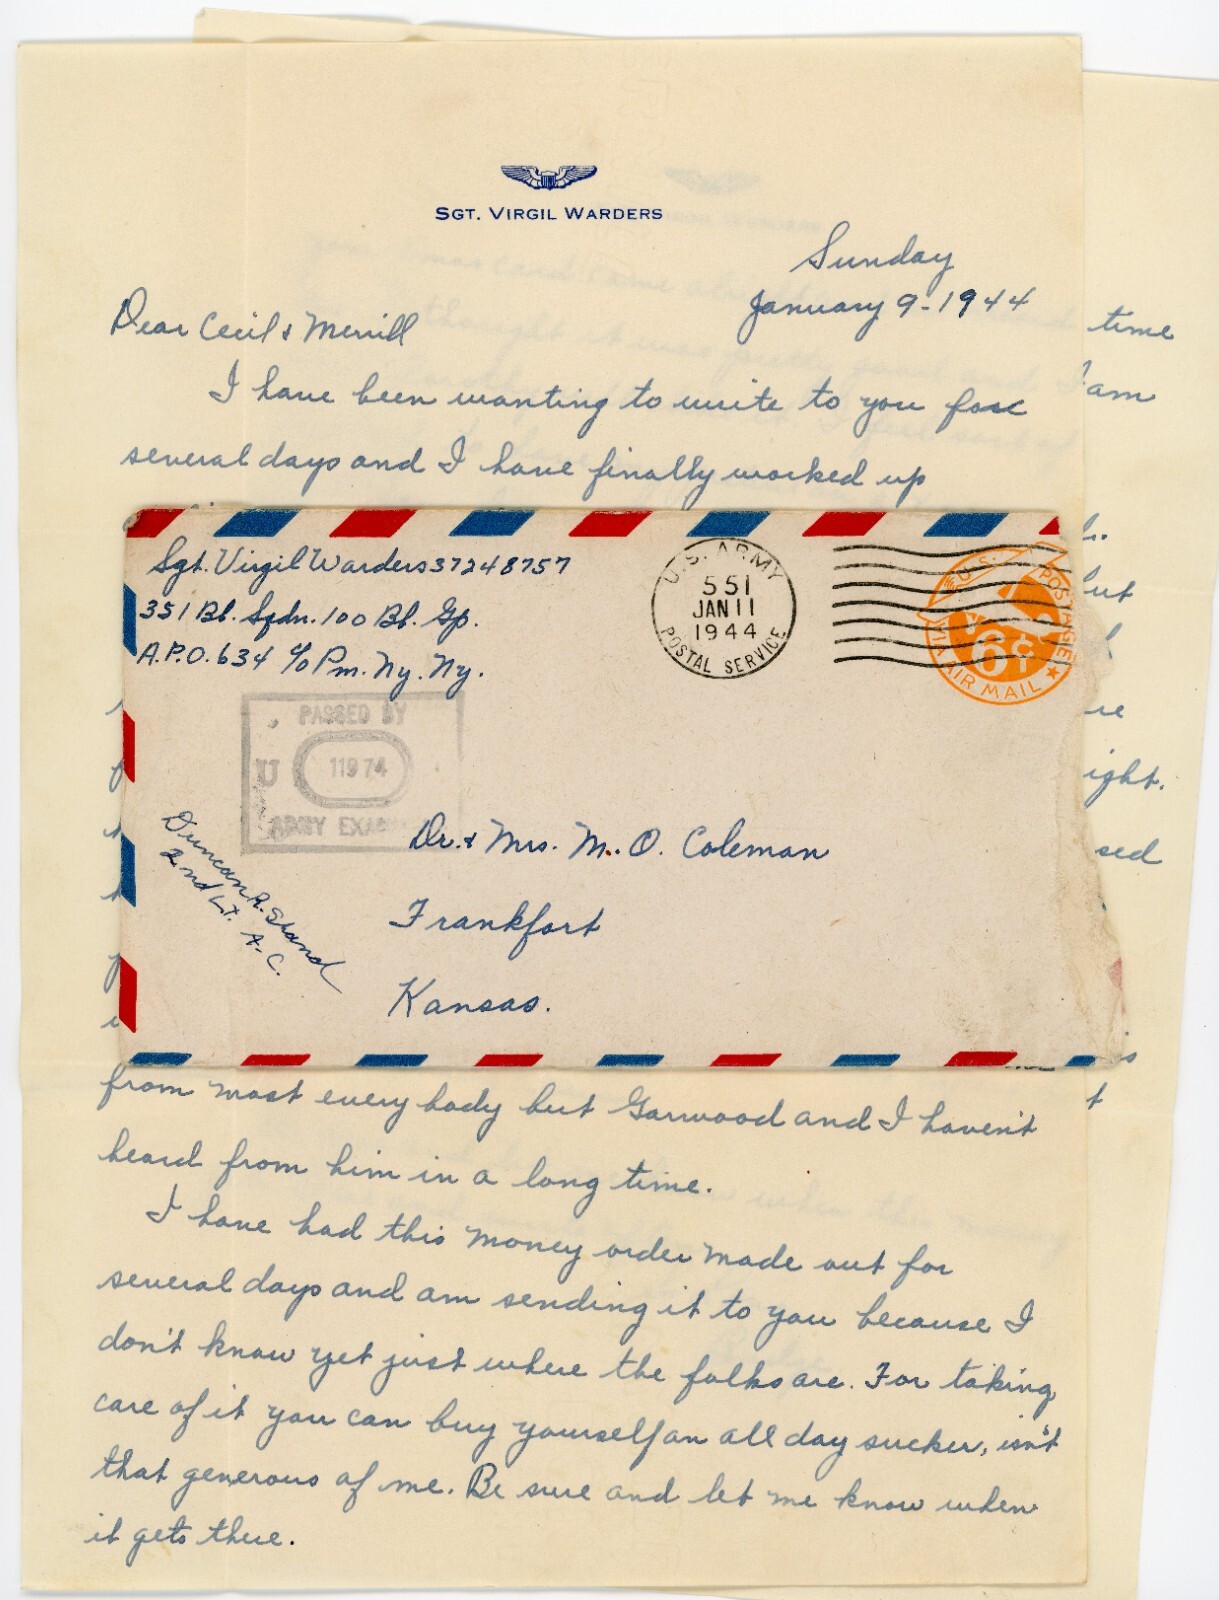 SGT. VIRGIL WARDERS
Sunday
January 9-1944
Dear Cecil & Merrill
I have been wanting to write to you for
several days and I have finally worked up
time
I am
but
ight.
sed
Sgt. Virgil Warders 37248757
351 Bb. Sqdn. 100 Bb. Gp.
A.P.O. 634 c/o Pm. Ny. Ny.
U.S. ARMY
551
JAN 11
1944
POSTAL SERVICE
U.S. POSTAGE
6¢
VIA AIR MAIL
PASSED BY
U
11974
ARMY EXA
Duncan R. Shand
2nd Lt. A.C.
Dr. & Mrs. M. O. Coleman
Frankfort
Kansas.
from most every body but Garwood and I haven't
heard from him in a long time.
I have had this money order made out for
several days and am sending it to you because I
don't know yet just where the folks are. For taking
care of it you can buy yourself an all day sucker, isn't
that generous of me. Be sure and let me know when
it gets there.